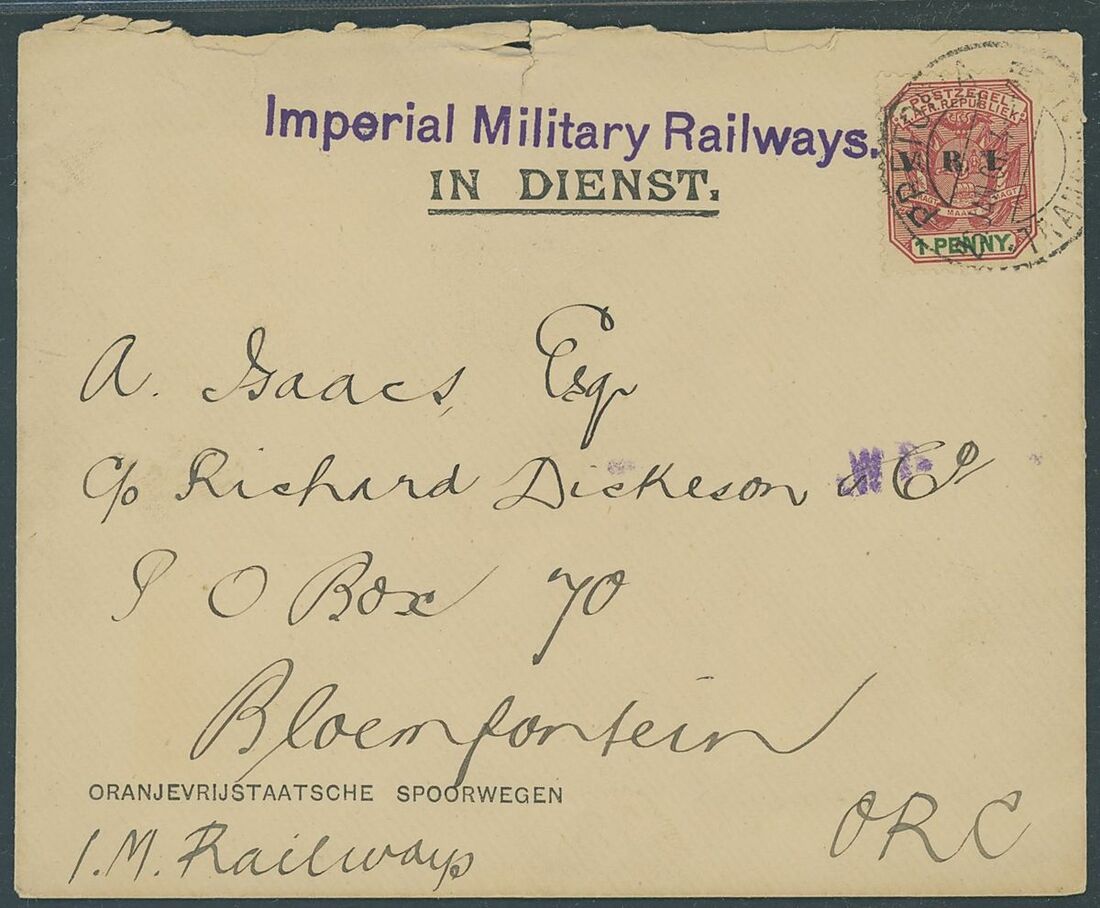 Imperial Military Railways.
IN DIENST.
POSTZEGEL.
Z.AFR.REPUBLIEK
V. R. I.
1 PENNY.
PRETORIA
JAN
A. Isaacs, Esq
c/o Richard Dickeson & Co
P O Box 70
Bloemfontein
ORANJEVRIJSTAATSCHE SPOORWEGEN
I.M. Railways
ORC